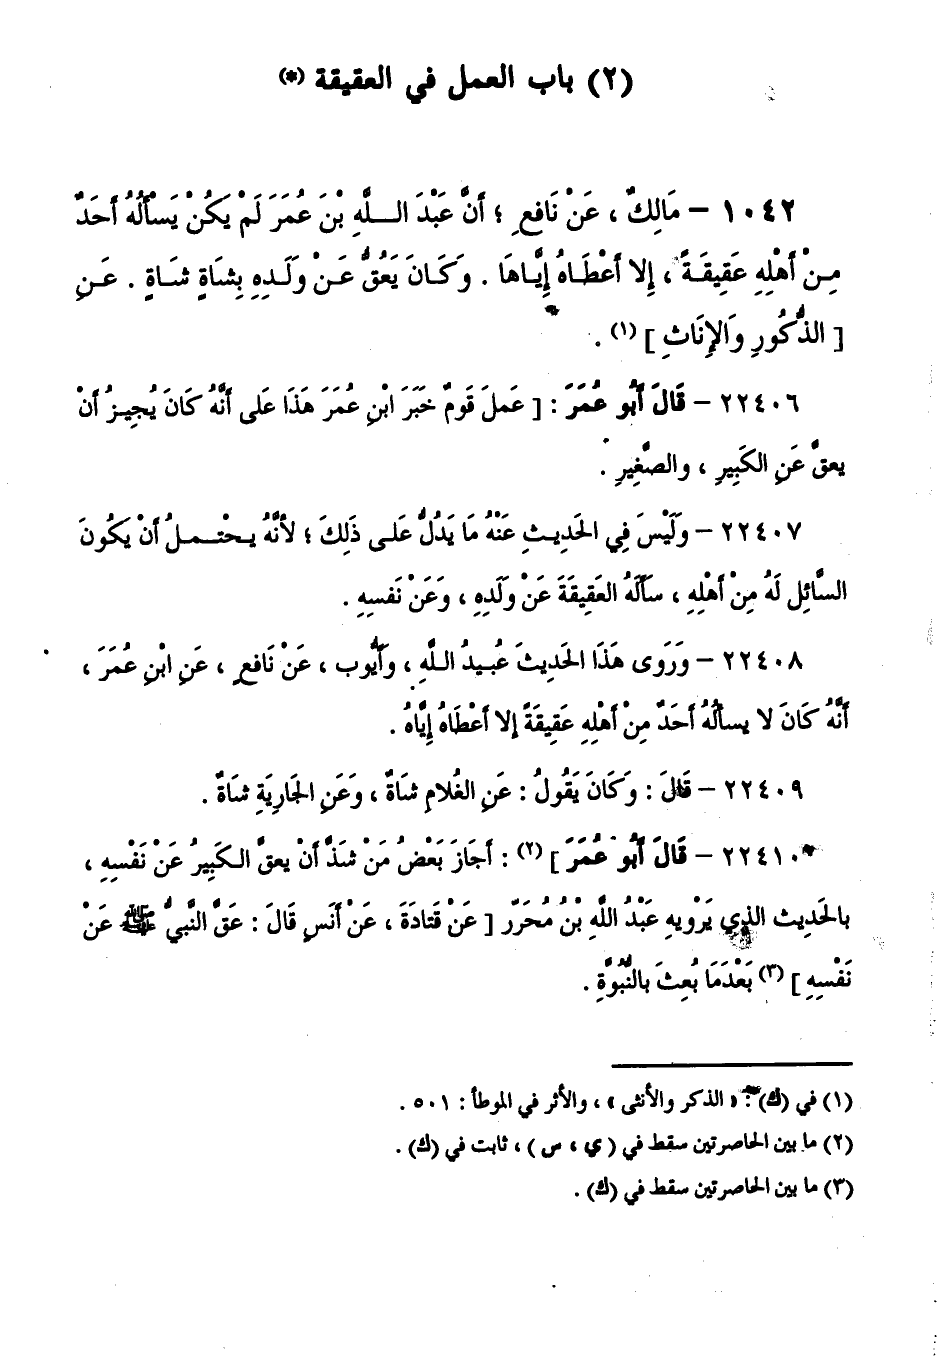 (٢) باب العمل في العقيقة (*)
١٠٤٢ – مَالِكٌ ، عَنْ نَافِعٍ ؛ أَنَّ عَبْدَ اللَّهِ بْنَ عُمَرَ لَمْ يَكُنْ يَسْأَلُهُ أَحَدٌ
مِنْ أَهْلِهِ عَقِيقَةً ، إِلا أَعْطَاهُ إِيَّاهَا . وَكَانَ يَعُقُّ عَنْ وَلَدِهِ بِشَاةٍ شَاةٍ . عَنِ
[ الذُّكُورِ وَالإِنَاثِ ] (١) .
٢٢٤٠٦ – قَالَ أَبُو عُمَرَ : [ عَمِلَ قَومٌ خَبَرَ ابْنِ عُمَرَ هَذَا عَلَى أَنَّهُ كَانَ يُجِيزُ أَنْ
يعقَّ عَنِ الكَبِيرِ ، والصَّغِيرِ .
٢٢٤٠٧ – وَلَيْسَ فِي الحَدِيثِ عَنْهُ مَا يَدُلُّ عَلَى ذَلِكَ ؛ لأنَّهُ يحْتملُ أَنْ يَكُونَ
السَّائِل لَهُ مِنْ أَهْلِهِ ، سأَلَهُ العَقِيقَةَ عَنْ وَلَدِهِ ، وَعَنْ نَفسِهِ .
٢٢٤٠٨ – وَرَوَى هَذَا الحَدِيثَ عُبيدُ اللَّهِ ، وَأَيُّوب ، عَنْ نَافعٍ ، عَنِ ابْنِ عُمَرَ ،
أَنَّهُ كَانَ لا يسأَلُهُ أَحَدٌ مِنْ أَهْلِهِ عَقِيقَةً إِلا أَعْطَاهُ إِيَّاهُ .
٢٢٤٠٩ – قَالَ : وَكَانَ يَقُولُ : عَنِ الغُلامِ شَاةٌ ، وَعَنِ الجَارِيَةِ شَاةٌ .
٢٢٤١٠ – قَالَ أَبُو عُمَرَ ] (٢) : أَجَازَ بَعْضُ مَنْ شَذَّ أَنْ يعقَّ الكَبِيرُ عَنْ نَفْسِهِ ،
بِالحَدِيث الذي يَرْويهِ عَبْدُ اللَّهِ بْنُ مُحَرّر [ عَنْ قَتادَةَ ، عَنْ أَنَسٍ قَالَ : عَقَّ النَّبيُّ ﷺ عَنْ
نَفْسِهِ ] (٣) بَعْدَمَا بُعِثَ بِالنُّبُوَّةِ .
(١) في (ك) : « الذكر والأنثى » ، والأثر في الموطأ : ٥٠١ .
(٢) ما بين الحاصرتين سقط في ( ي ، س ) ، ثابت في (ك) .
(٣) ما بين الحاصرتين سقط في (ك) .